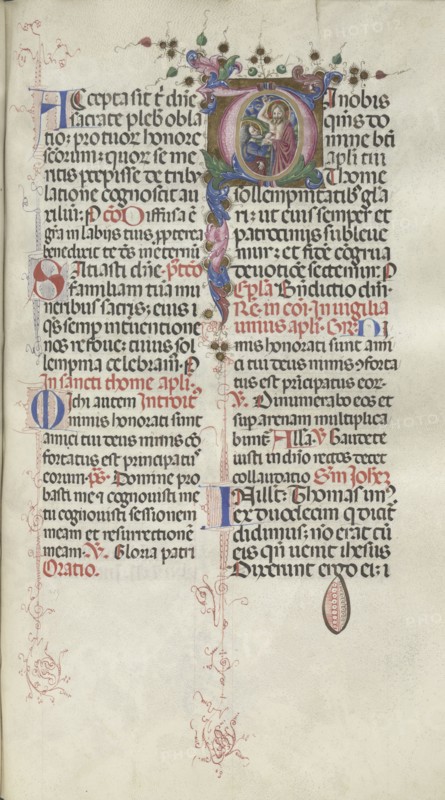 Accepta sit t̃ dñe
sacrate pleb̃ obla
tio: pro tuor̃ honore
scõrum: quor̃ se me
ritis p̃cepisse de tribu
latione cognoscit au
xiliũ: P Cõ Diffusa ẽ
gr̃a in labijs tuis ppterea
benedixit te ds̃ in eternũ
Satiasti dñe p̃t cõ
familiam tuã mu
neribus sacris; eius
q̃s semp̃ inteuentione
nos refoue: cuius sol
lempnia celebram⁹. P
In sancti thome apl̃i
Michi autem Introit⁹
nimis honorati sunt
amici tui deus nimis cõ
fortatus est principatu⁹
eorum. ps̃. Domine pro
basti me ⁊ cognouisti me
tu cognouisti sessionem
meam et resurrectionẽ
meam. V̶. Gloria patri
Oratio.
Da nobis
q̃ms do
mine bt̃i
apl̃i tui
Thome
sollempnitatib⁹ glo
ri: ut eius semper et
patrocinijs subleue
mur: et fidẽ cõgrua
deuotiõe sectemur. P
Ep̃l̃a Bñdictio dñi.
Re. in cõi. In uigilia
unius apl̃i. Gr̃. Ni
mis honorati sunt ami
ci tui deus nimis ɔforta
tus est prĩcipatus eor̃.
V̶. Dinumerabo eos et
sup̃ arenam multiplica
bunt̃ Alla V̶ Gaudete
iusti in dño rectos decet
collaudatio S̃m Joh̃em
In illo t̃: Thomas un⁹
ex duodecim q̃ dicit̃
didimus: nõ erat cũ
eis qñ uenit ihesus
Dixerunt ergo ei: i